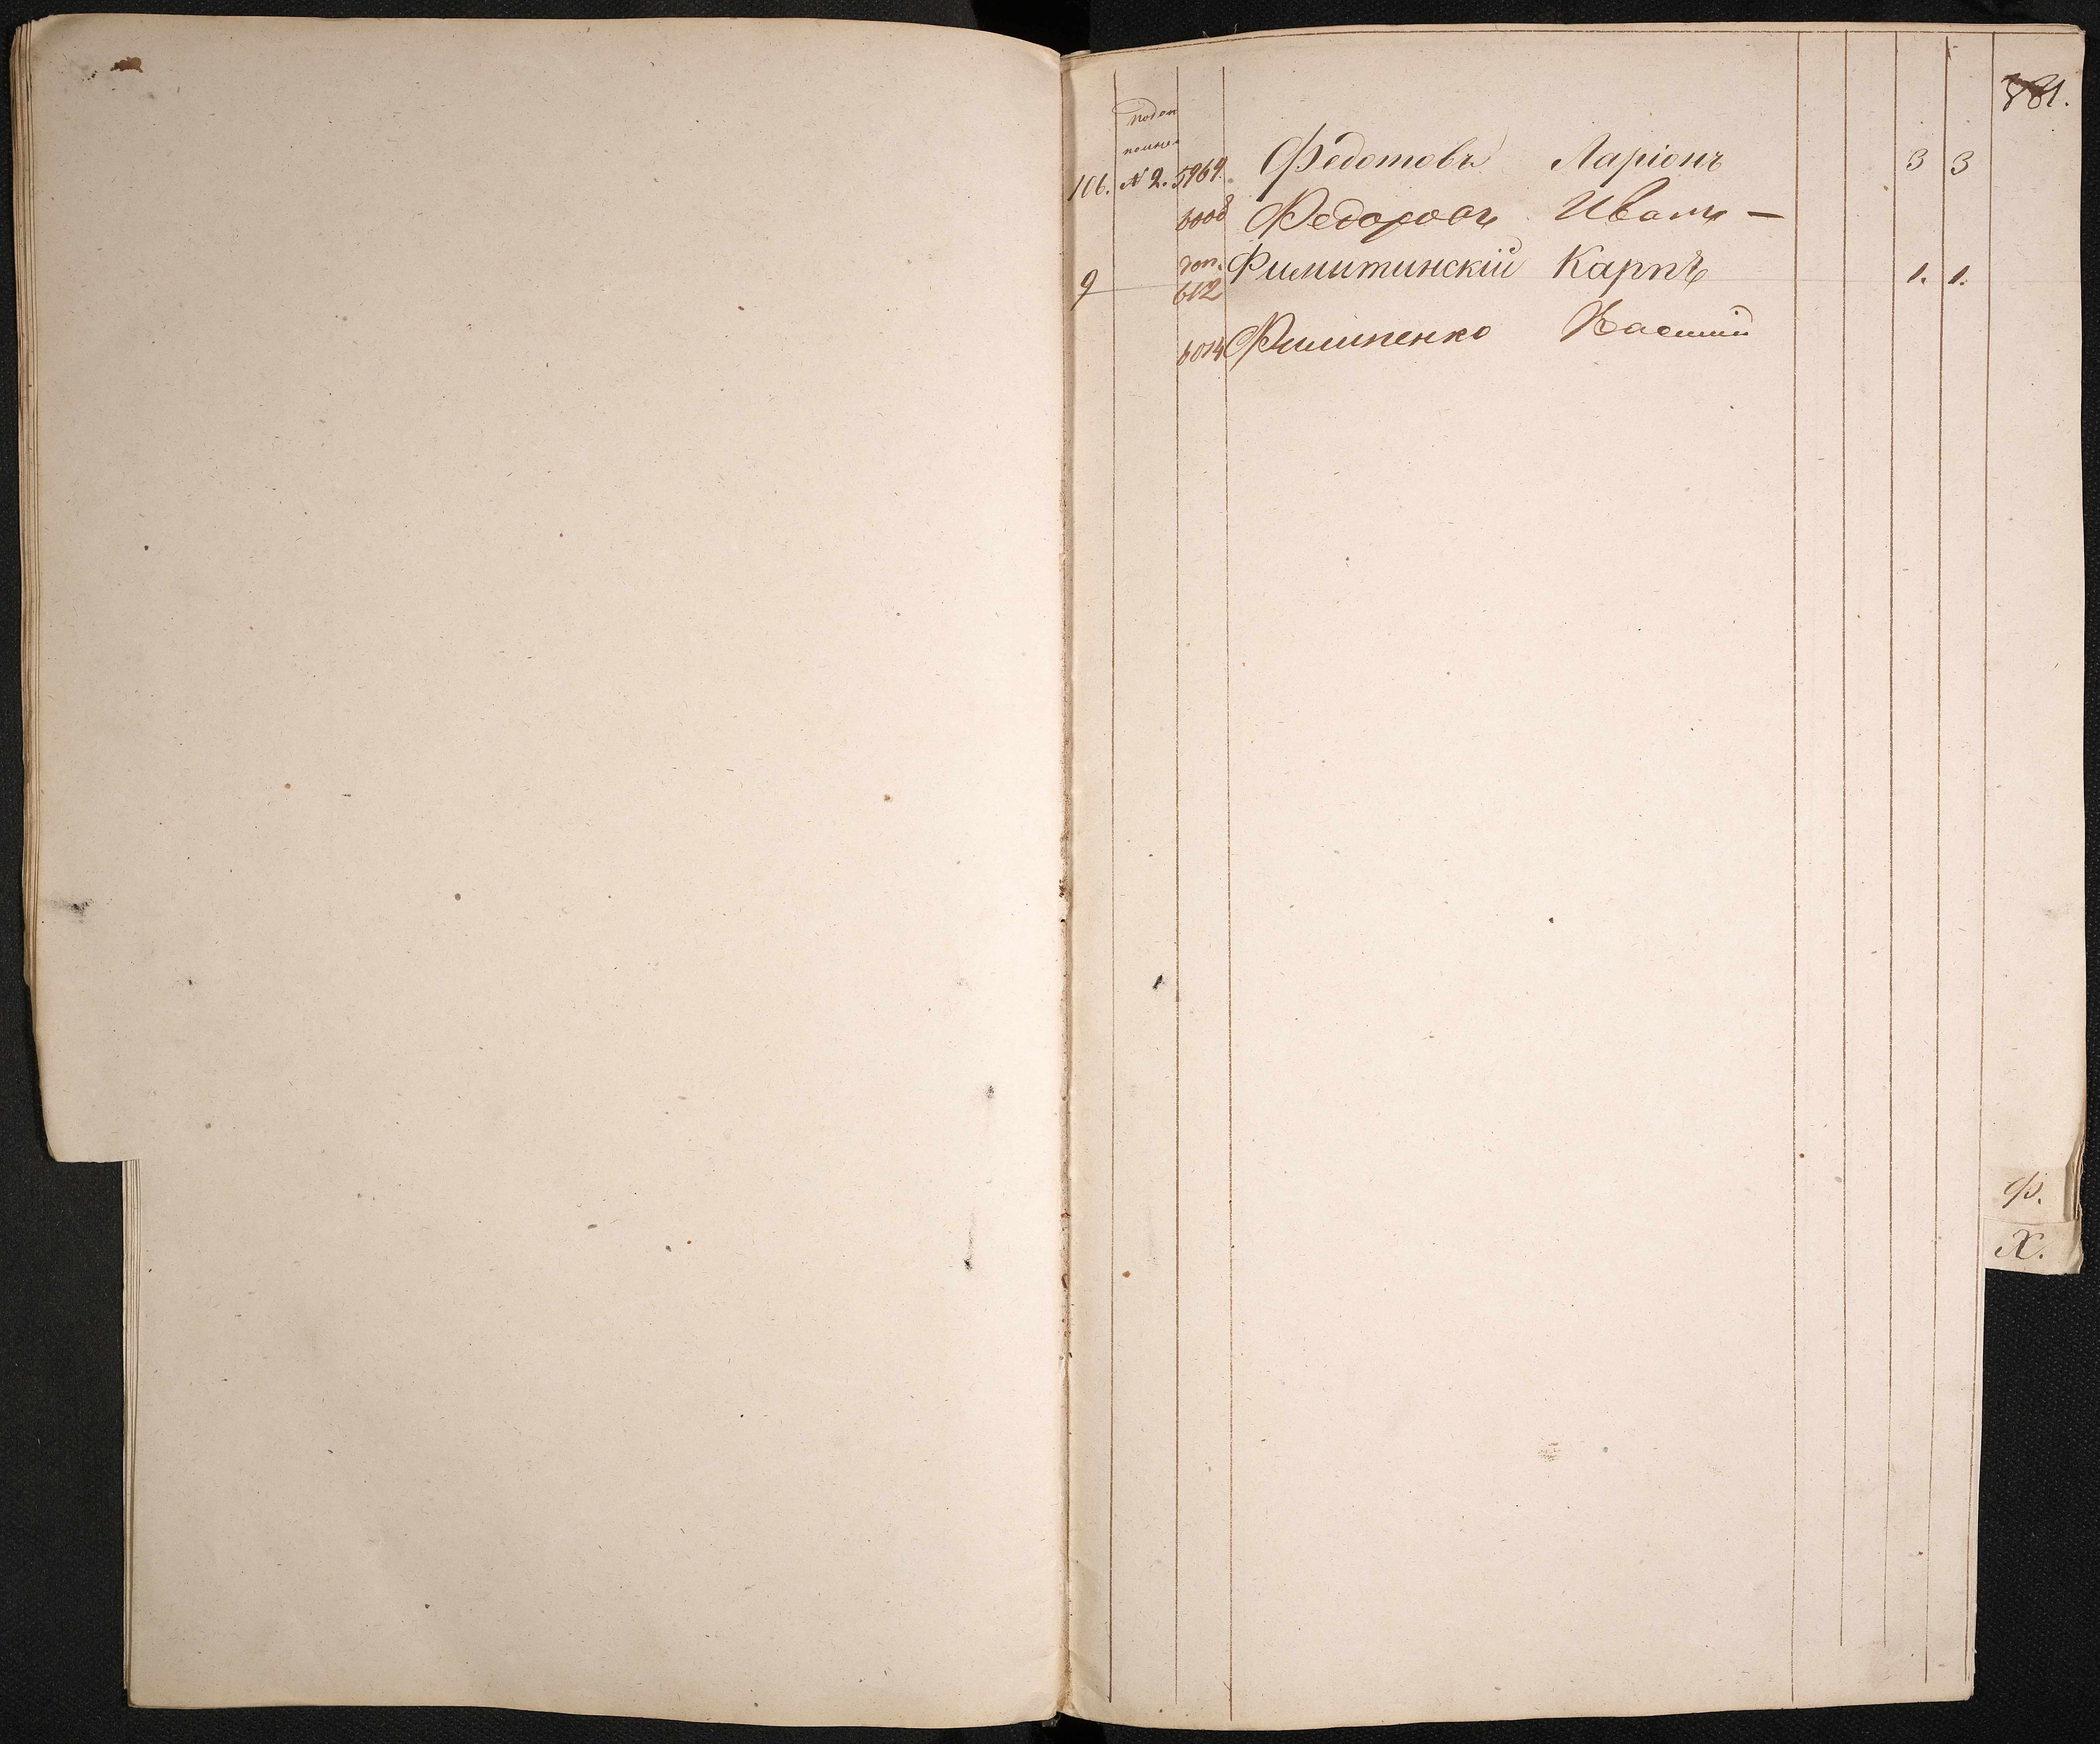 106. № 2. 5969. Федотовъ Ларіонъ 3 3
6008 Федоровъ Иванъ —
9 доп. 612 Филитинскій Карпъ 1. 1.
6014 Филипенко Василій
Ф.
Х.